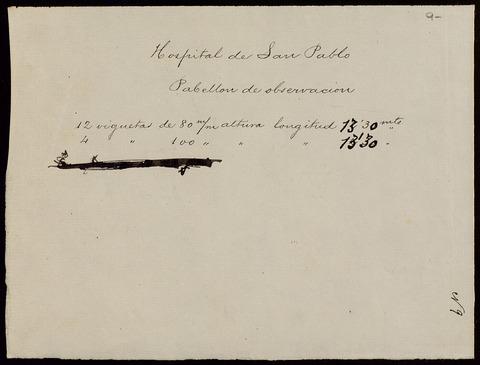 9-
Hospital de San Pablo
Pabellon de observacion
12 viguetas de 80 m/m altura longitud 13'30 mts
4 " 100 " " " 13'30 "
Nº 9